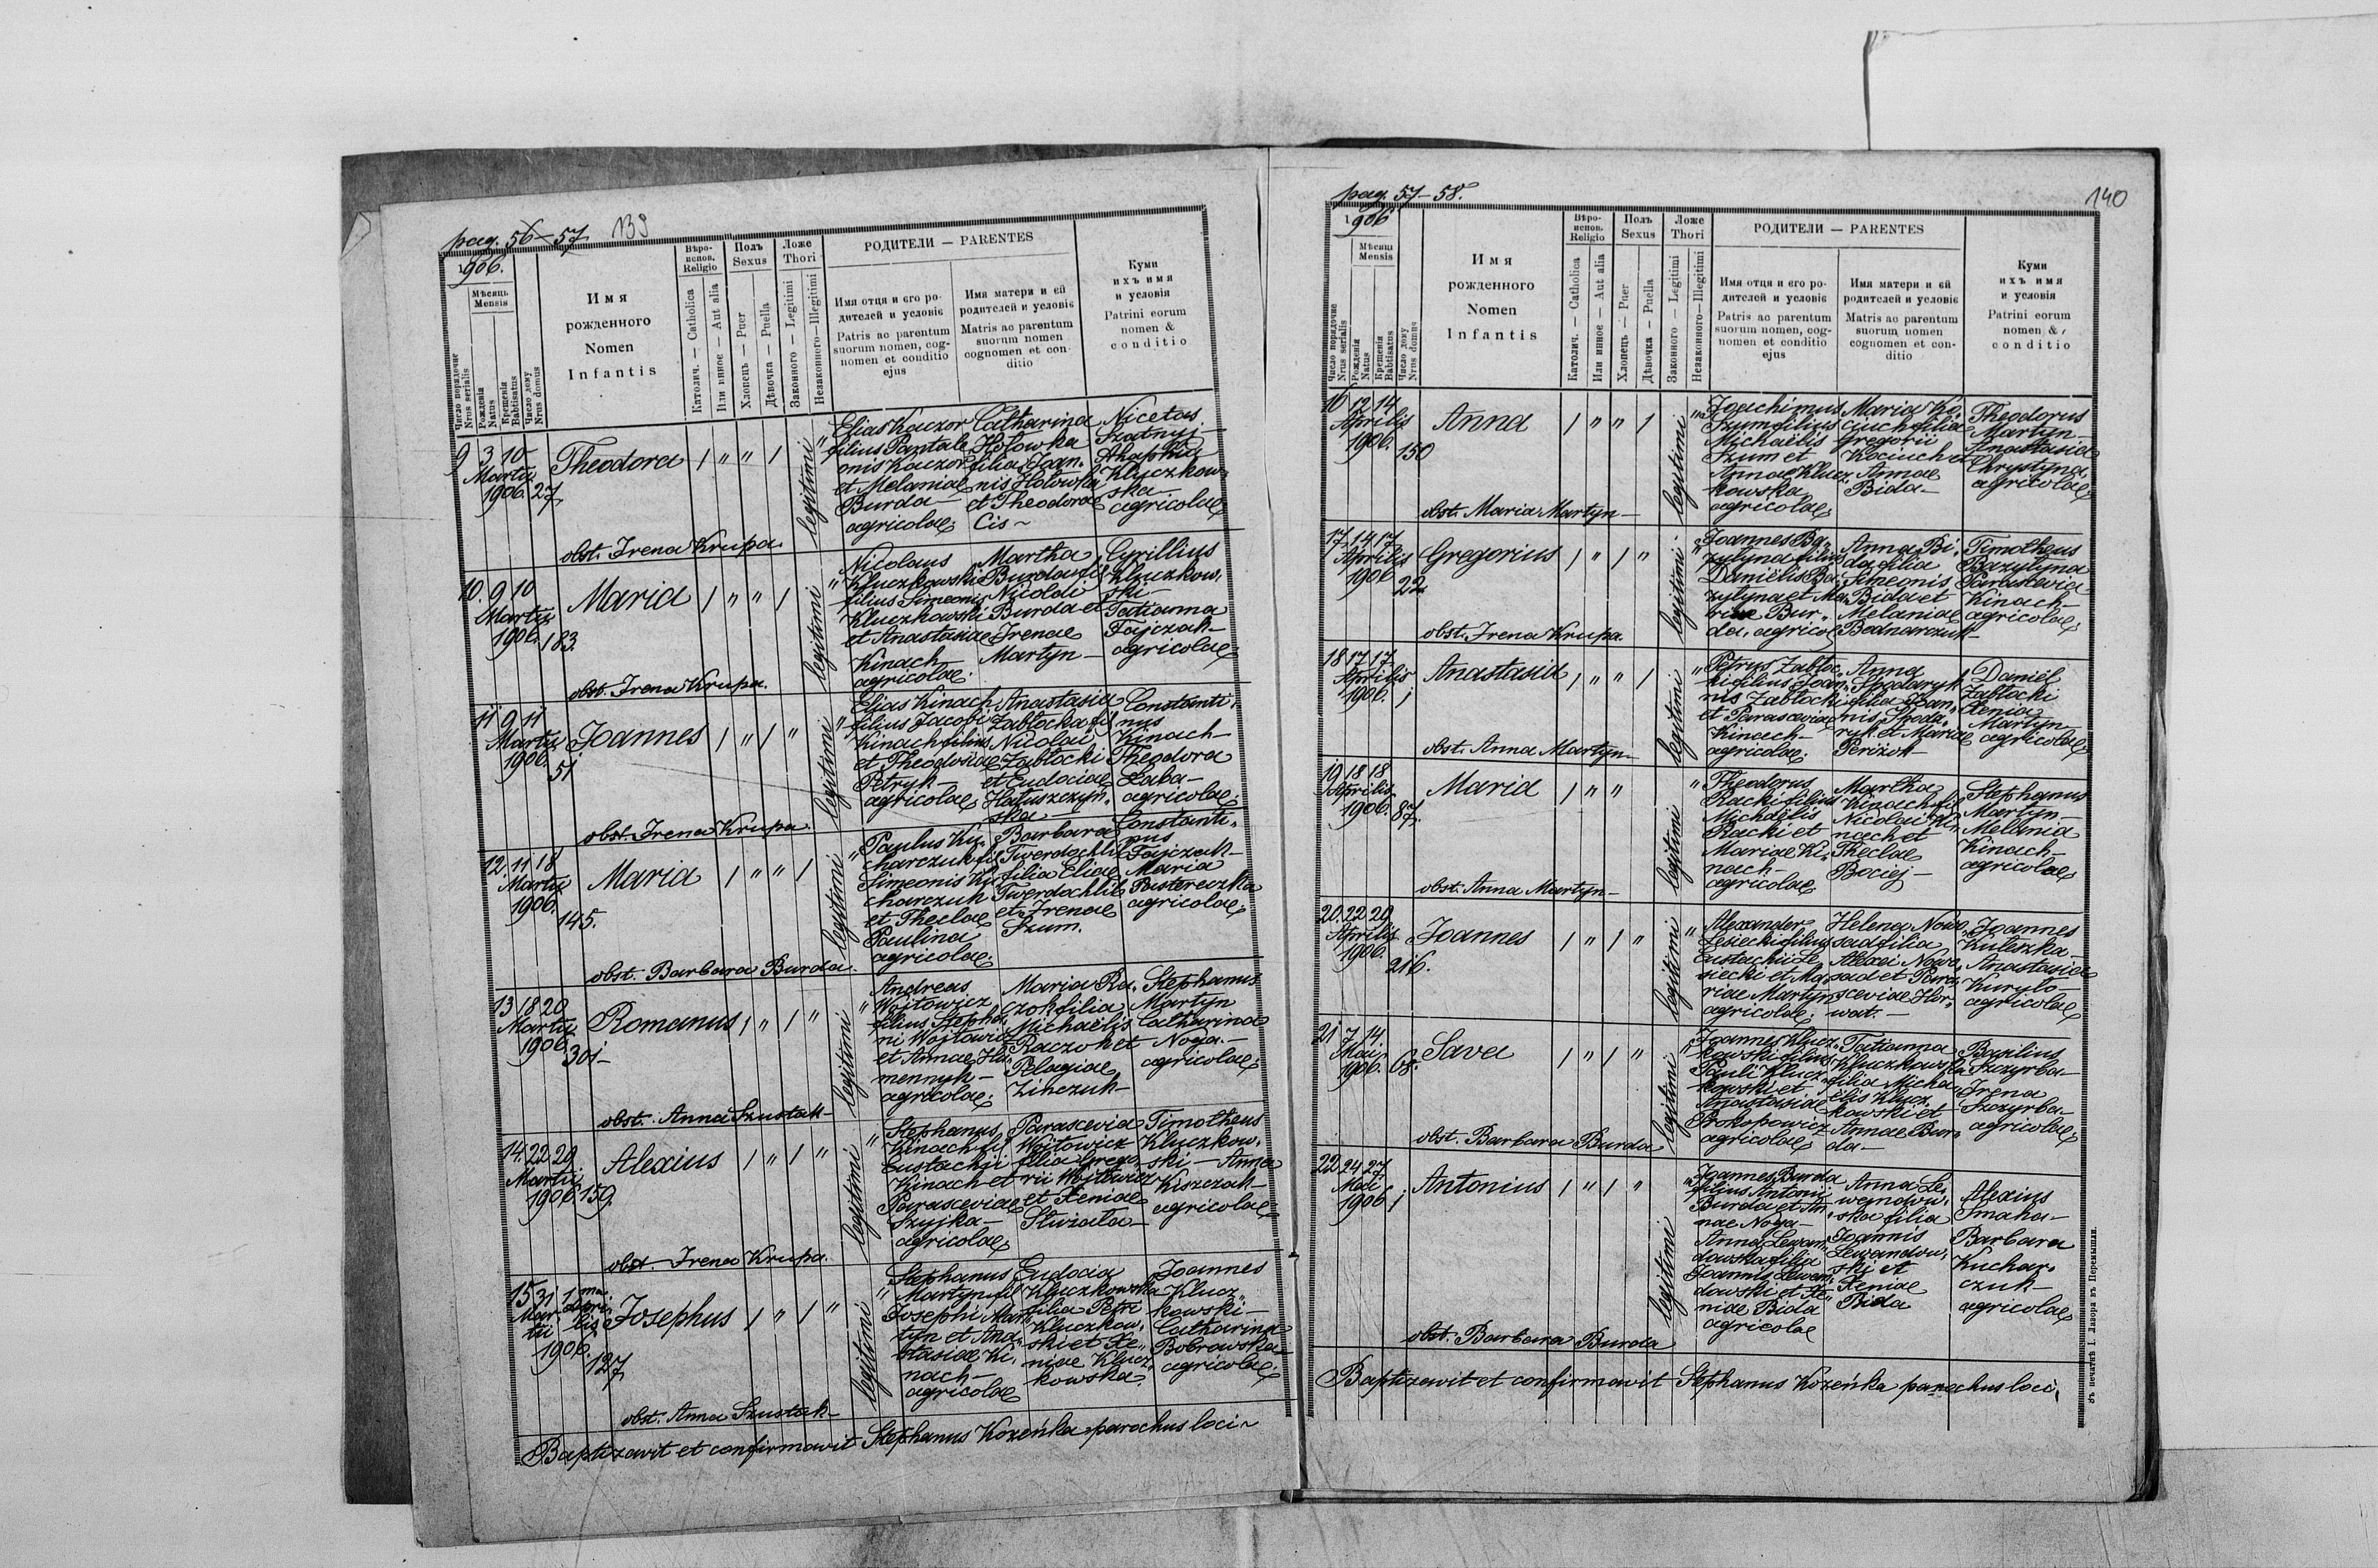 pag. 56-57. 139
1906.
Мѣсяць
Mensis
Число порядочне
Nrus serialis
Рожденія
Natus
Крещенія
Babtisatus
Число дому
Nrus domus
Имя
рожденного
Nomen
Infantis
Вѣро-
испов.
Religio
Католич. — Catholica
Или инное — Aut alia
Полъ
Sexus
Хлопець — Puer
Дѣвочка — Puella
Ложе
Thori
Законного — Legitimi
Незаконного — Illegitimi
РОДИТЕЛИ — PARENTES
Имя отця и єго ро-
дителей и условіє
Patris ac parentum
suorum nomen, cog-
nomen et conditio
ejus
Имя матери и єй
родителей и условіє
Matris ac parentum
suorum nomen
cognomen et con-
ditio
Куми
ихъ имя
и условія
Patrini eorum
nomen &
conditio
9 3 10
Martii
1906. 27.
Theodora / " " /
legitimi "
Elias Kaczor
filius Pantale
onis Kaczor
et Melaniae
Burda —
agricolae.
Catharina
Hołowka
filia Joan.
nis Hołowka
et Theodorae
Cis ~
Nicetas
Szatnyj —
Ahaphia
Kluczkow,
ska —
agricolae.
obst. Irena Krupa.
10. 9 10
Martii
1906. 183.
Maria / " " /
legitimi "
Nicolaus
Kluczkowski
filius Simeonis
Kluczkowski
et Anastasiae
Kinach —
agricolae.
Martha
Burda fil.
Nicolai
Burda et
Irenae
Martyn —
Cyrillius
Kluczkow,
ski —
Tatianna
Fajczak —
agricolae.
obst. Irena Krupa.
11 9 11
Martii
1906. 51
Joannes / " / "
legitimi "
Elias Kinach
filius Jacobi
Kinach filius
et Theodosiae
Petryk —
agricolae.
Anastasia
Zabłocka fil.
Nicolai
Zabłocki
et Eudociae
Hałuszczyn,
ska —
Constanti,
nus
Kinach —
Theodora
Łaba —
agricolae.
obst. Irena Krupa.
12. 11 18
Martii
1906. 145.
Maria / " " /
legitimi "
Paulus Ku,
charczuk fil.
Simeonis Ku
charczuk
et Theclae
Paulina
agricolae.
Barbara
Twerdochlib
filia Eliae
Twerdochlib
et Irenae
Szum.
Constanti,
nus
Fajczak —
Maria
Pastereczka
agricolae.
obst. Barbara Burda.
13 18 20
Martii
1906. 301 —
Romanus / " / "
legitimi "
Andreas
Wojtowicz
filius Stepha,
ni Wojtowicz
et Annae Hu,
mennyk —
agricolae.
Maria Ra,
czok filia
Michaëlis
Raczok et
Pelagiae
Zinczuk —
Stephanus
Martyn
Catharina
Noga. —
agricolae.
obst. Anna Szustak —
14. 22 29
Martii
1906 159.
Alexius / " / "
legitimi "
Stephanus
Kinach fil.
Eustachii
Kinach et
Parasceviae
Szyjka —
agricolae.
Parascevia
Wojtowicz
filia Grego,
rii Wojtowicz
et Xeniae
Stwiała —
Timotheus
Kluczkow,
ski — Anna
Kiszczak —
agricolae —
obst. Irena Krupa.
15 31 1ma
Mar- Apri-
tii lis
1906. 127
Josephus / " / "
legitimi "
Stephanus
Martyn fil.
Josephi Mar,
tyn et Ana,
stasiae Ki,
nach —
agricolae
Eudocia
Kluczkowska
filia Petri
Kluczkow,
ski et Xe,
niae Klucz,
kowska.
Joannes
Klucz,
kowski —
Catharina
Bobrowska —
agricolae.
obst. Anna Szustak —
Baptizavit et confirmavit Stephanus Kozeńka parochus loci ~
pag. 57-58. 140
1906
Мѣсяць
Mensis
Число порядочне
Nrus serialis
Рожденія
Natus
Крещенія
Babtisatus
Число дому
Nrus domus
Имя
рожденного
Nomen
Infantis
Вѣро-
испов.
Religio
Католич. — Catholica
Или инное — Aut alia
Полъ
Sexus
Хлопець — Puer
Дѣвочка — Puella
Ложе
Thori
Законного — Legitimi
Незаконного — Illegitimi
РОДИТЕЛИ — PARENTES
Имя отця и єго ро-
дителей и условіє
Patris ac parentum
suorum nomen, cog-
nomen et conditio
ejus
Имя матери и єй
родителей и условіє
Matris ac parentum
suorum nomen
cognomen et con-
ditio
Куми
ихъ имя
и условія
Patrini eorum
nomen &
conditio
16 12 14
Aprilis
1906. 150
Anna / " " /
legitimi "
Joachimus
Szum filius
Michaëlis
Szum et
Annae Klucz,
kowska
agricolae.
Maria Ko,
ciuch filia
Gregorii
Kociuch et
Annae
Bida —
Theodorus
Martyn —
Anastasia
Chrystyna.
agricolae.
obst. Maria Martyn —
17. 14 17
Aprilis
1906 22
Gregorius / " / "
legitimi "
Joannes Ba,
zylyna filius
Daniëlis Ba,
zylyna et Ma,
riae Bur,
da. agricol
Anna Bi,
da filia
Simeonis
Bida et
Melaniae
Bodnarczuk —
Timotheus
Bazylyna
Parascevia
Kinach —
agricolae.
obst. Irena Krupa.
18 17 17
Aprilis
1906. 1
Anastasia / " " /
legitimi "
Petrus Zabłoc,
ki filius Joan,
nis Zabłocki
et Parasceviae
Kinach —
agricolae.
Anna
Spodaryk
filia Joan,
nis Spoda,
ryk et Mariae
Periżok —
Daniël
Zabłocki
Xenia
Martyn —
agricolae
obst. Anna Martyn —
19 18 18
Aprilis
1906. 87.
Maria / " "
legitimi "
Theodorus
Racki filius
Michaëlis
Racki et
Mariae Ki,
nach —
agricolae
Martha
Kinach fil.
Nicolai Ki,
nach et
Theclae
Bociej —
Stephanus
Martyn —
Melania
Kinach —
agricolae
obst. Anna Martyn —
20. 22 29
Aprilis
1906. 216.
Joannes / " / "
legitimi "
Alexander
Lesiecki filius
Eustachii Le,
siecki et Ma,
riae Martyn
agricolae.
Helena Nowo,
sad filia
Alexei Nowo,
sad et Para,
sceviae Hor,
wat. —
Joannes
Kuleszka —
Anastasia
Kuryło —
agricolae
21 7 14.
Mai
1906. 68.
Sava / " / "
legitimi "
Joannes Klucz,
kowski filius
Pauli Klucz,
kowski et
Anastasiae
Prokopowicz
agricolae
Tatianna
Kluczkowska
filia Micha,
ëlis Klucz,
kowski et
Annae Bur,
da —
Basilius
Szczyrba —
Irena
Szczyrba —
agricolae.
obst. Barbara Burda
22 24 27
Mai
1906 1
Antonius / " / "
legitimi "
Joannes Burda
filius Antonii
Burda et An,
nae Noga —
Anna Lewan,
dowska filia
Joannis Lewan,
dowski et Xe,
niae Bida
agricolae
Anna Le,
wandow,
ska filia
Joannis
Lewandow,
ski et
Xeniae
Bida
Alexius
Smaha —
Barbara
Kuchar,
czuk —
agricolae
obst. Barbara Burda
Baptizavit et confirmavit Stephanus Kozeńka parochus loci.
Въ печатнѣ І. Лазора въ Перемышли.